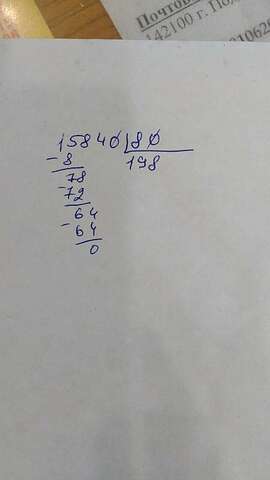 Почтов
142100 г. По
15840 80
- 8 198
78
- 72
64
- 64
0